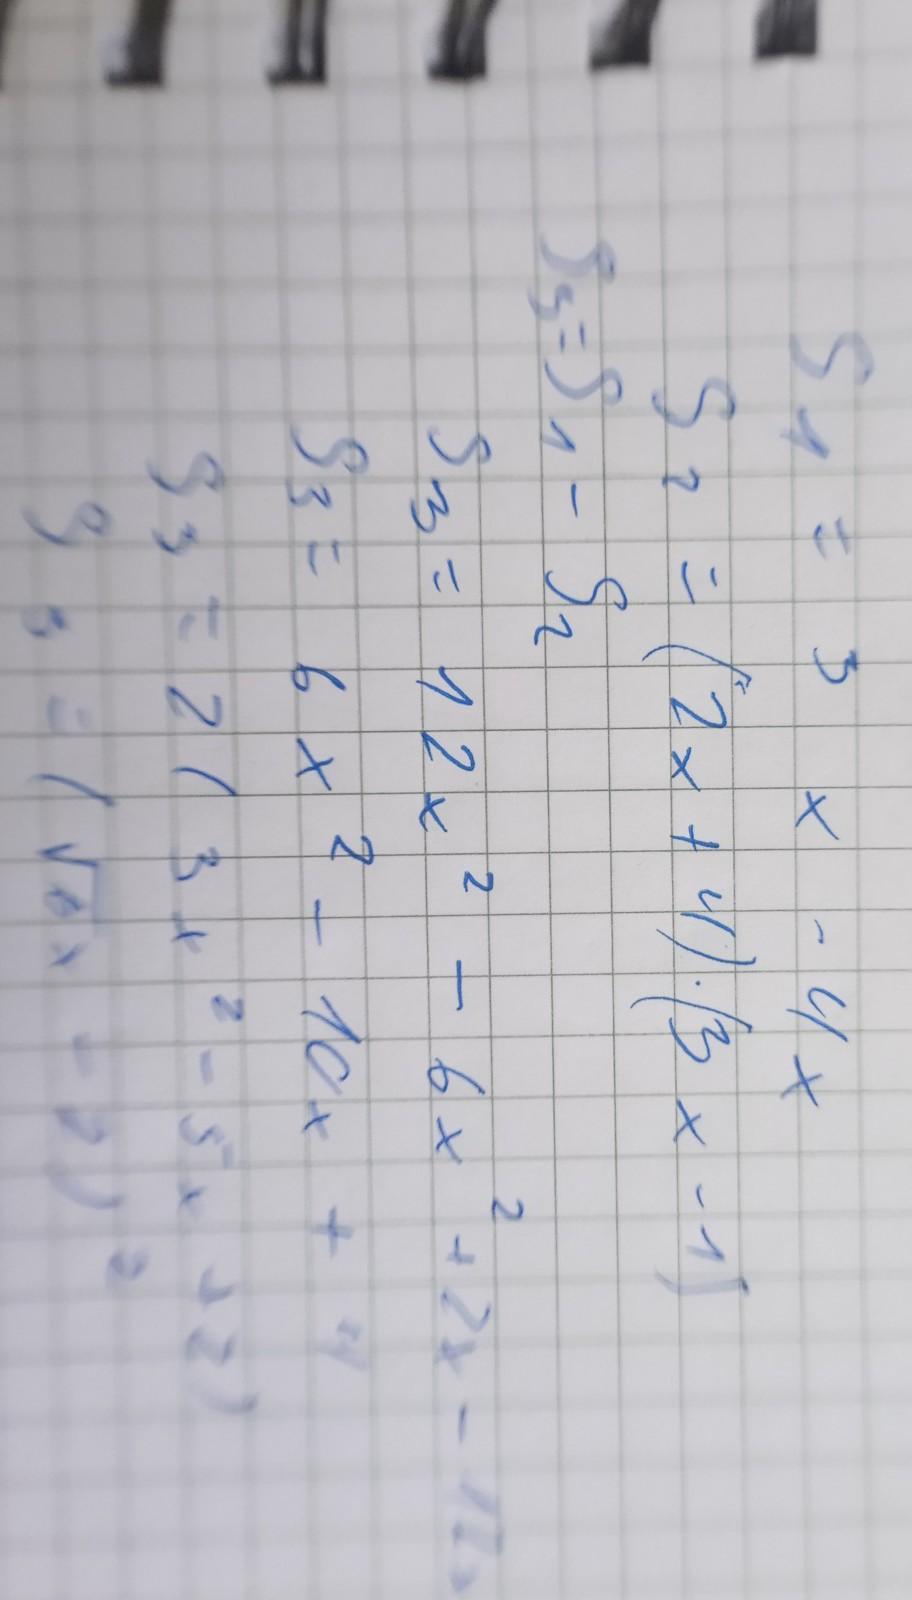 S1 = 3x - 4x
S2 = (2x + 4) · (3x - 1)
S3 = S1 - S2
S3 = 12x² - 6x² + 2x - 12x
S3 = 6x² - 10x + 4
S3 = 2(3x² - 5x + 2)
S3 = (√6x - 2)²